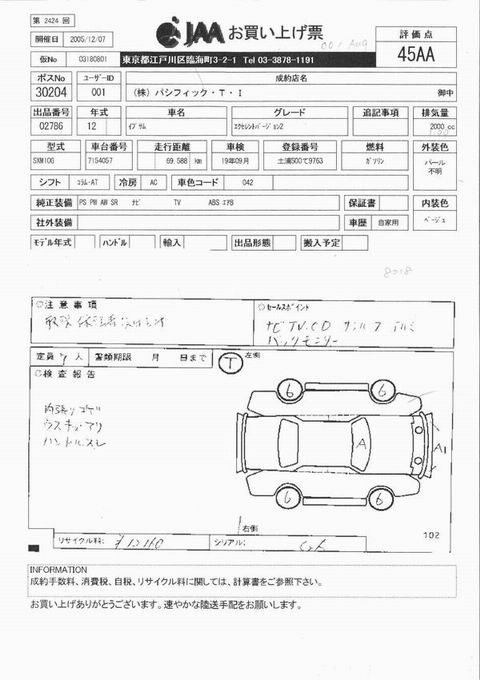 第 2424 回
開催日 2005/12/07
JAA お買い上げ票
評価点
45AA
仮No 03180801
東京都江戸川区臨海町3-2-1 Tel 03-3878-1191
ポスNo ユーザーID 成約店名
30204 001 (株) パシフィック・T・I 御中
出品番号 年式 車名 グレード 追記事項 排気量
02786 12 イプサム エクセレントバージョン2 2000 cc
型式 車台番号 走行距離 車検 登録番号 燃料 外装色
SXM10G 7154057 69,588 km 19年09月 土浦500て9763 ガソリン パール
不明
シフト コラム-AT 冷房 AC 車色コード 042
純正装備 PS PW AW SR ナビ TV ABS エアB 保証書 内装色
社外装備 車歴 自家用 ベージュ
モデル年式 ハンドル 輸入 出品形態 搬入予定
8018
○注意事項
○セールスポイント
ナビTV.CD サンルーフ アルミ
バックモニター
定員 7 人 書類期限 月 日まで
T 左側
○検査報告
内張りコゲ
ウスキズアリ
ハンドルスレ
6 6
A A1
6 6
右側
102
リサイクル料: ¥
シリアル:
INFORMATION
成約手数料、消費税、自税、リサイクル料に関しては、計算書をご参照下さい。
お買い上げありがとうございます。速やかな陸送手配をお願いします。